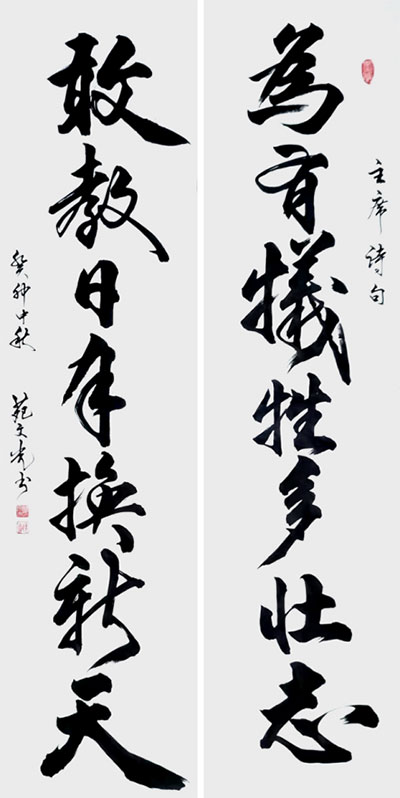 主席詩句
為有犧牲多壮志
敢教日月換新天
癸卯中秋 苑文光书